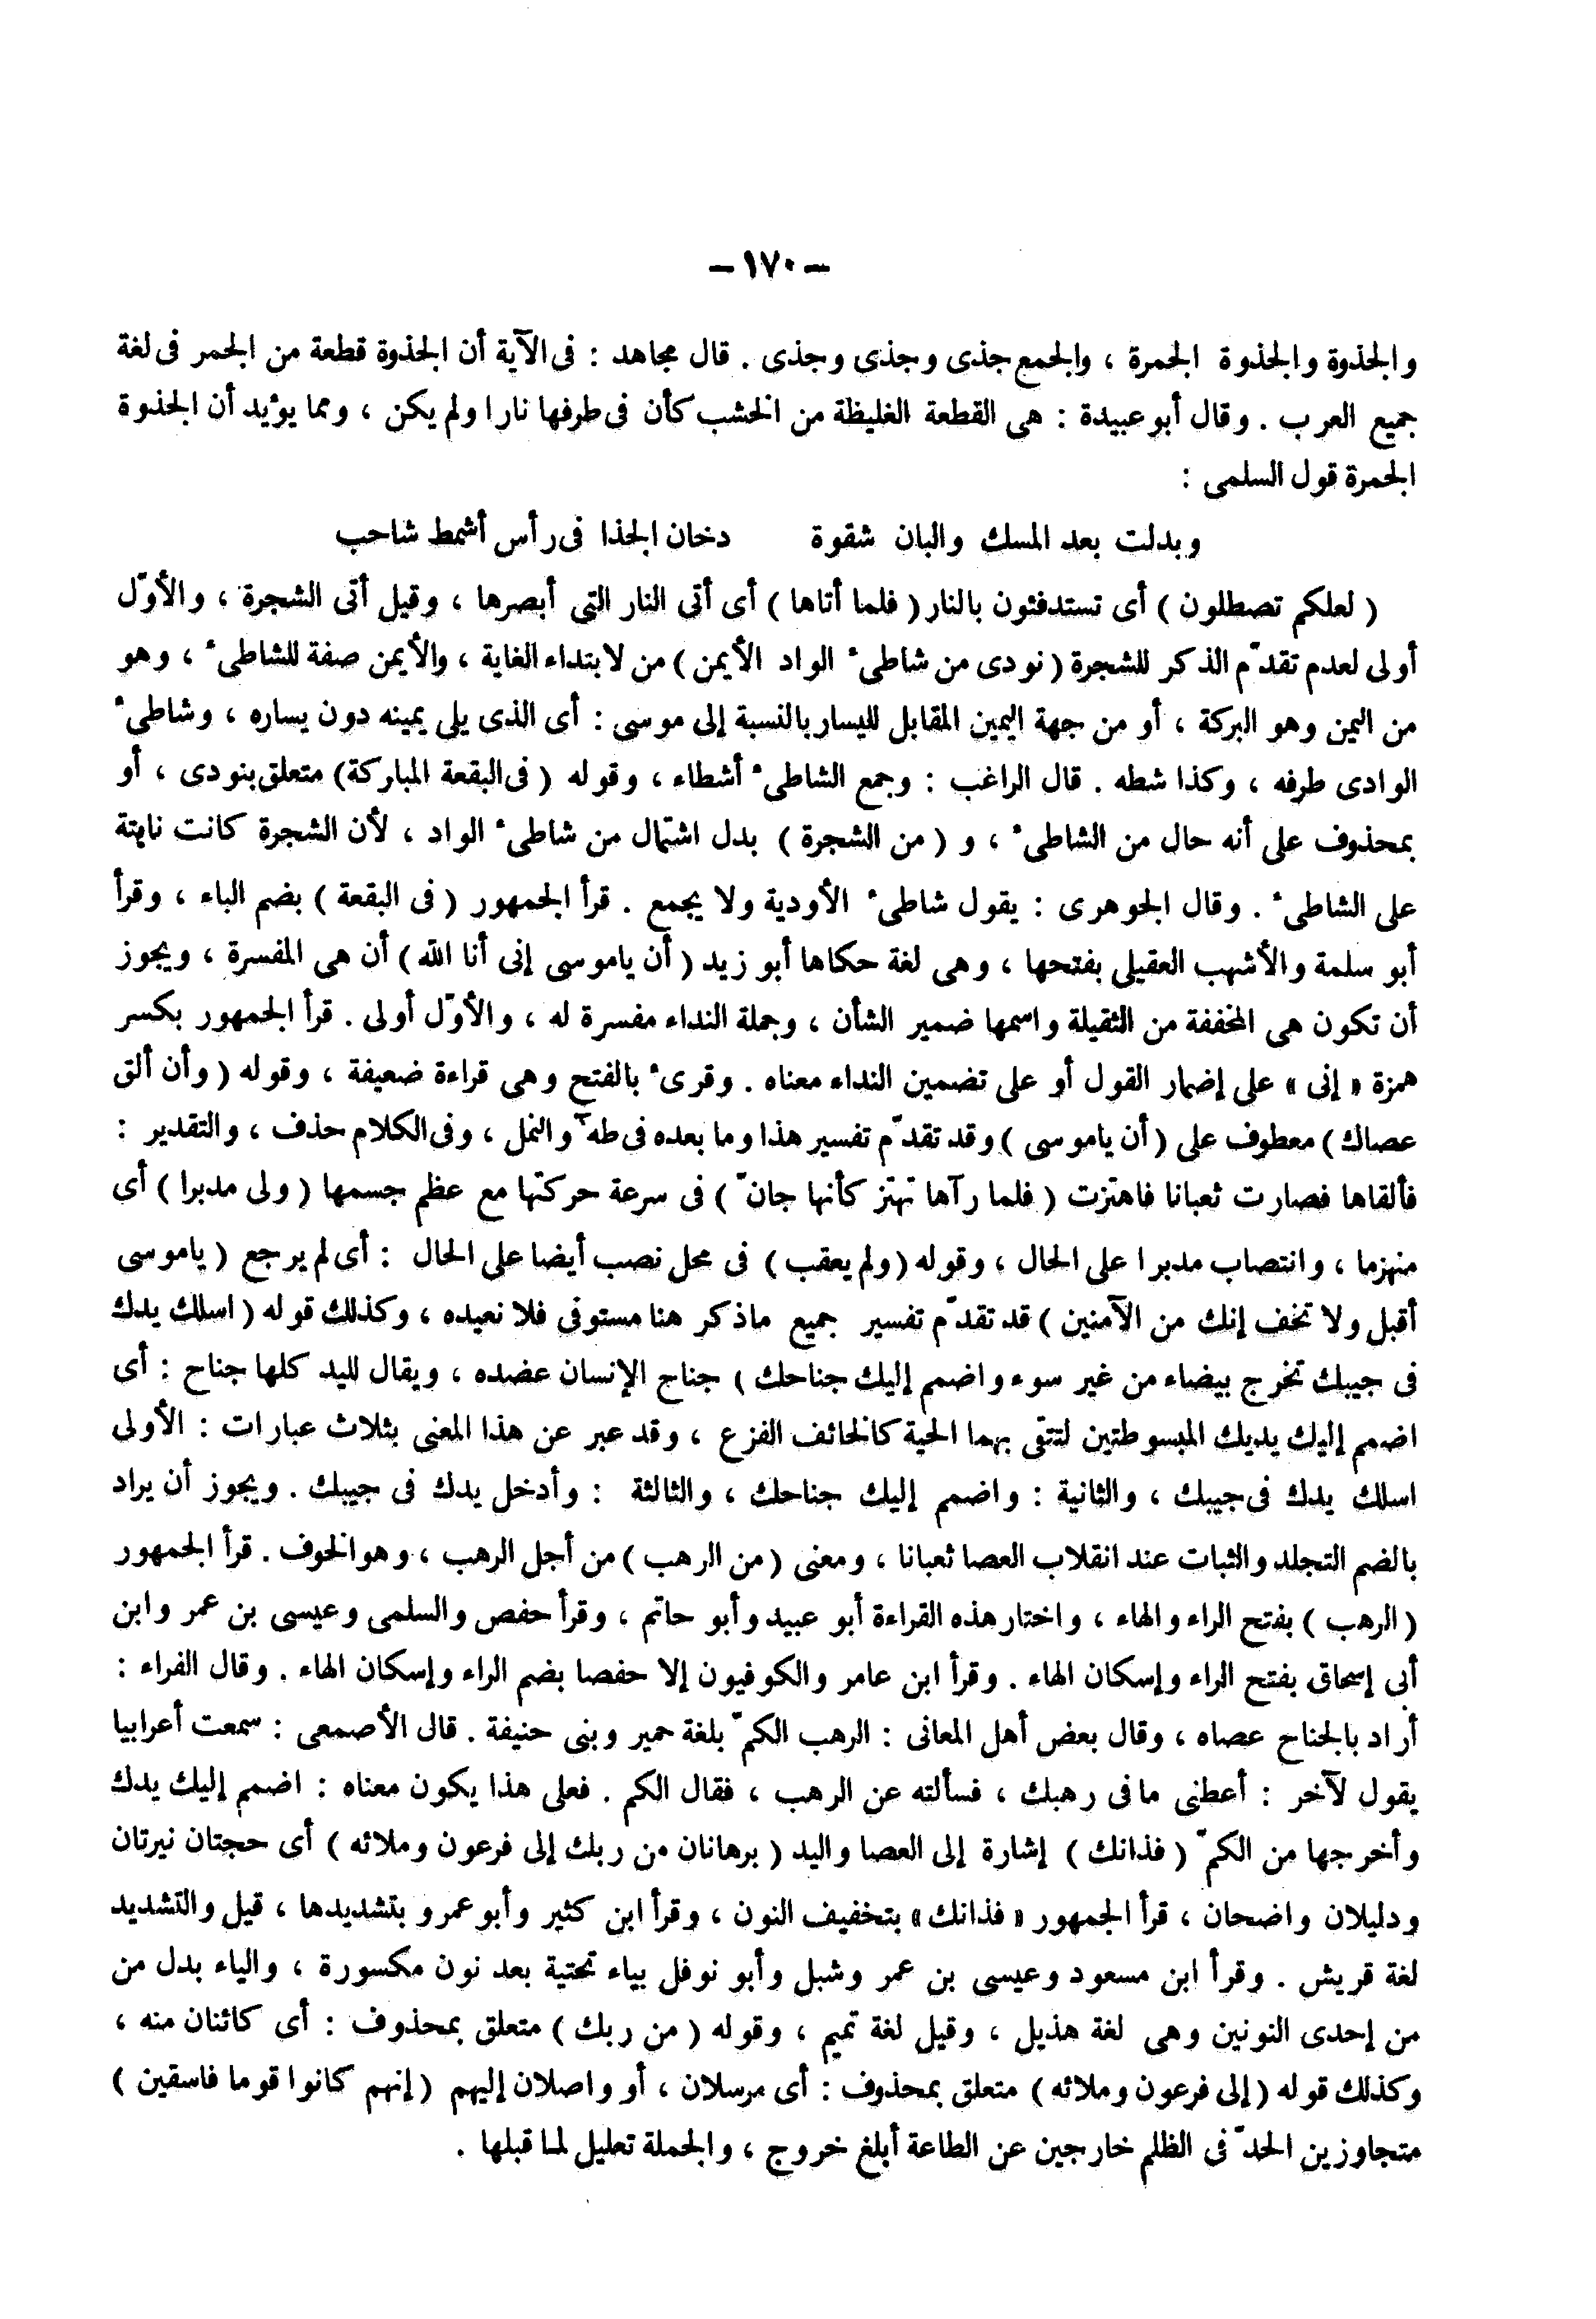 — ١٧٠ —
والجذوة والجذوة الجمرة ، والجمع جذى وجذى وجذى . قال مجاهد : فى الآية أن الجذوة قطعة من الجمر فى لغة
جميع العرب . وقال أبو عبيدة : هى القطعة الغليظة من الخشب كأن فى طرفها نارا ولم يكن ، ومما يؤيد أن الجذوة
الجمرة قول السلمى :
وبدلت بعد المسك والبان شقوة دخان الجذا فى رأس أشمط شاحب
( لعلكم تصطلون ) أى تستدفئون بالنار ( فلما أتاها ) أى أتى النار التى أبصرها ، وقيل أتى الشجرة ، والأوّل
أولى لعدم تقدّم الذكر للشجرة ( نودى من شاطىء الواد الأيمن ) من لابتداء الغاية ، والأيمن صفة للشاطىء ، وهو
من اليمن وهو البركة ، أو من جهة اليمين المقابل لليسار بالنسبة إلى موسى : أى الذى يلى يمينه دون يساره ، وشاطىء
الوادى طرفه ، وكذا شطه . قال الراغب : وجمع الشاطىء أشطاء ، وقوله ( فى البقعة المباركة ) متعلق بنودى ، أو
بمحذوف على أنه حال من الشاطىء ، و ( من الشجرة ) بدل اشتمال من شاطىء الواد ، لأن الشجرة كانت نابتة
على الشاطىء . وقال الجوهرى : يقول شاطىء الأودية ولا يجمع . قرأ الجمهور ( فى البقعة ) بضم الباء ، وقرأ
أبو سلمة والأشهب العقيلى بفتحها ، وهى لغة حكاها أبو زيد ( أن ياموسى إنى أنا الله ) أن هى المفسرة ، ويجوز
أن تكون هى المخففة من الثقيلة واسمها ضمير الشأن ، وجملة النداء مفسرة له ، والأوّل أولى . قرأ الجمهور بكسر
همزة « إنى » على إضمار القول أو على تضمين النداء معناه . وقرىء بالفتح وهى قراءة ضعيفة ، وقوله ( وأن ألق
عصاك ) معطوف على ( أن ياموسى ) وقد تقدّم تفسير هذا وما بعده فى طه والنمل ، وفى الكلام حذف ، والتقدير :
فألقاها فصارت ثعبانا فاهتزت ( فلما رآها تهتز كأنها جانّ ) فى سرعة حركتها مع عظم جسمها ( ولى مدبرا ) أى
منهزما ، وانتصاب مدبرا على الحال ، وقوله ( ولم يعقب ) فى محل نصب أيضا على الحال : أى لم يرجع ( ياموسى
أقبل ولا تخف إنك من الآمنين ) قد تقدّم تفسير جميع ماذكر هنا مستوفى فلا نعيده ، وكذلك قوله ( اسلك يدك
فى جيبك تخرج بيضاء من غير سوء واضمم إليك جناحك ) جناح الإنسان عضده ، ويقال لليد كلها جناح : أى
اضمم إليك يديك المبسوطتين لتتقى بهما الحية كالخائف الفزع ، وقد عبر عن هذا المعنى بثلاث عبارات : الأولى
اسلك يدك فى جيبك ، والثانية : واضمم إليك جناحك ، والثالثة : وأدخل يدك فى جيبك . ويجوز أن يراد
بالضم التجلد والثبات عند انقلاب العصا ثعبانا ، ومعنى ( من الرهب ) من أجل الرهب ، وهو الخوف . قرأ الجمهور
( الرهب ) بفتح الراء والهاء ، واختار هذه القراءة أبو عبيد وأبو حاتم ، وقرأ حفص والسلمى وعيسى بن عمر وابن
أبى إسحاق بفتح الراء وإسكان الهاء . وقرأ ابن عامر والكوفيون إلا حفصا بضم الراء وإسكان الهاء . وقال الفراء :
أراد بالجناح عصاه ، وقال بعض أهل المعانى : الرهب الكمّ بلغة حمير وبنى حنيفة . قال الأصمعى : سمعت أعرابيا
يقول لآخر : أعطنى مافى رهبك ، فسألته عن الرهب ، فقال الكم . فعلى هذا يكون معناه : اضمم إليك يدك
وأخرجها من الكمّ ( فذانك ) إشارة إلى العصا واليد ( برهانان من ربك إلى فرعون وملائه ) أى حجتان نيرتان
ودليلان واضحان ، قرأ الجمهور « فذانك » بتخفيف النون ، وقرأ ابن كثير وأبو عمرو بتشديدها ، قيل والتشديد
لغة قريش . وقرأ ابن مسعود وعيسى بن عمر وشبل وأبو نوفل بياء تحتية بعد نون مكسورة ، والياء بدل من
من إحدى النونين وهى لغة هذيل ، وقيل لغة تميم ، وقوله ( من ربك ) متعلق بمحذوف : أى كائنان منه ،
وكذلك قوله ( إلى فرعون وملائه ) متعلق بمحذوف : أى مرسلان ، أو واصلان إليهم ( إنهم كانوا قوما فاسقين )
متجاوزين الحدّ فى الظلم خارجين عن الطاعة أبلغ خروج ، والجملة تعليل لما قبلها .